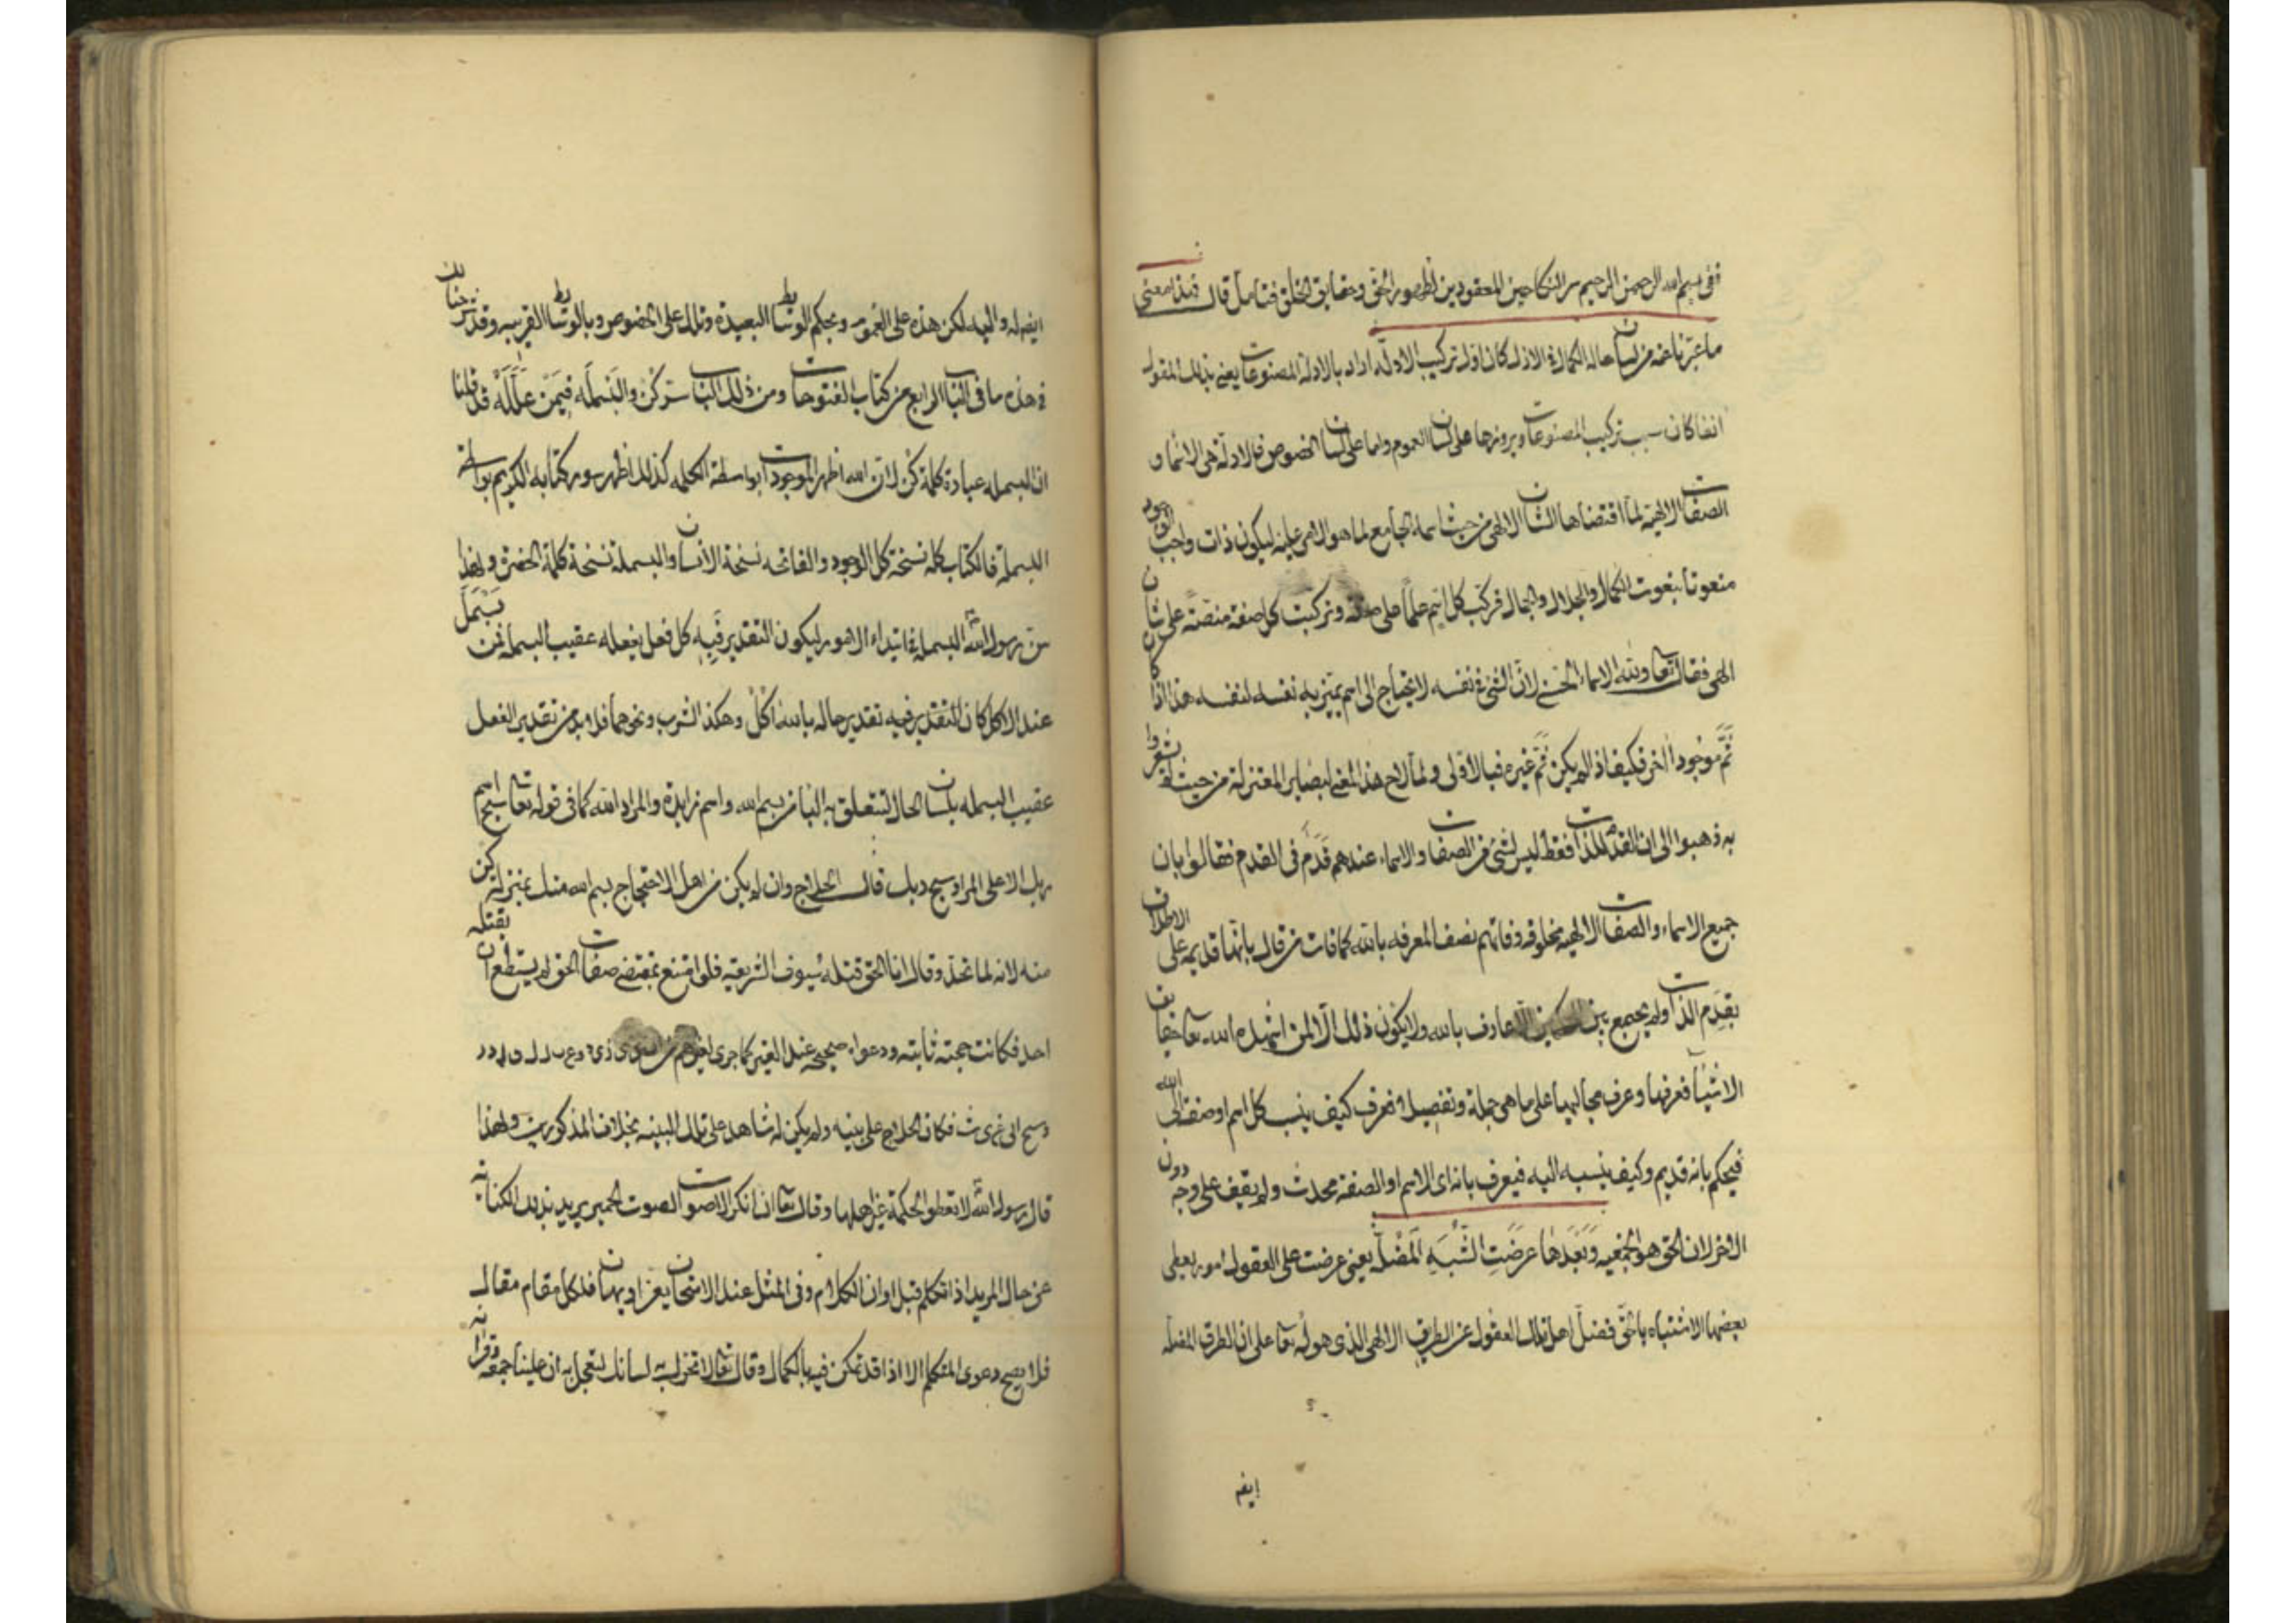 ففى بسم الله الرحمن الرحيم سر النكاحين المعقودين لظهور الحق وحقايق الخلق فتأمل قال فهذا معنى
ما عبرنا عنه من لسان حاله الكمال فى الازل كان اول تركيب الادلة اراد بالادلة المصنوعات يعنى بذلك المقول
انفا كان سبب تركيب المصنوعات وبروزها على لسان العموم واما على لسان الخصوص فالادلة هى الاسما و
الصفات الالهية لما اقتضاها الشان الالهى من حيث اسمه الجامع لما هو الامر عليه ليكون ذات واجب الوجود
منعوتا بنعوت الكمال والجلال والجمال فركب كل اسم علما على صفة وتركبت كل صفة منصة على شان
الهى فقال تعا ولله الاسماء الحسنى لان الشئ فى نفسه لا يحتاج الى اسم يتميز به نفسه لنفسه هذا اذا كان
ثم موجودا اخر فكيف اذ لم يكن ثم غيره فبالاولى ولما لاح هذا المعنى لبصاير المعتزلة من حيث لم يشعروا
به ذهبوا الى ان القدم للذات فقط ليس لشئ من الصفات والاسماء عندهم قدم فى القدم فقالوا بان
جميع الاسماء والصفات الالهيه مخلوقه وفاتهم نصف المعرفه بالله كما فات من قال بانها قديمه على الاطلاق
بقدم الذات ولم يجمع بين عارف بالله ولا يكون ذلك الا لمن اشهده الله تعا حقايق
الاشيآ فعرفها وعرف مجاليها على ما هى جملة وتفصيلا فعرف كيف ينسب كل اسم او صفة الى الله
فيحكم بانه قديم وكيف ينسبه اليه فيعرف بانه اى الاسم او الصفة محدث ولم يقف على وجه دون
الاخر لان الحق هو الجمعيه وَبَعْدَهَا عرضَتِ الشُبَهِ المضلّه يعنى عرضت على العقول امور يعطى
بعضها الاشتباه بالحق فضل اهل تلك العقول عن الطريق الالهى الذى هو له تعا على ان الطرق المضله
ايضه
ايضه له واليه لكن هذه على العموم وبحكم الوسائط البعيدة وتلك على الخصوص وبالوسائط القريبه وقد شرحنا لك
فى هذه ما فى الباب الرابع من كتاب الفتوحات ومن ذلك الباب سر كن والبسمله فيمن علله قد قلنا
ان البسمله عبارة كلمة كن لان الله اظهر الموجودات بواسطة الكلمه كذلك اظهر سور كتابه الكريم بواسطة
البسملة فالكتاب كله نسخة كل الوجود والفاتحه نسخة الانسان والبسملة نسخة كلمة الحضرة ولهذا
سن رسول الله البسملة فى ابتداء الامور ليكون التقدير فيه كل فعل يفعله عقيب البسملة فمن بسمل
عند الاكل كان التقدير فيه تقدير حاله بالله اكل وهكذا الشرب ونحوهما فلا بد من تقدير الفعل
عقيب البسمله بلسان الحال لتتعلق به البا من بسم الله واسم زايدة والمراد الله كما فى قوله تعا سبح اسم
ربك الاعلى المراد سبح ربك قال الحلاج وان لم يكن من اهل الاحتجاج بسم الله منك بمنزلة كن
منه لانه لما تحد وقال انا الحق قتله سيوف الشريعه فلو امتنع بمقتضى صفات الحق لم يستطع ان يقتله
احد فكانت حجته ثابته ودعواه صحيحه عند الغير كما جرى
فكان الحلاج على بينه ولم يكن له شاهد على تلك البينه بخلاف المذكورين ولهذا
قال رسول الله لا تعطوا الحكمة غير اهلها وقال تعا ان انكر الاصوات لصوت الحمير يريد بذلك الكنايه
عن حال المريد اذا تكلم قبل اوان الكلام وفى المثل عند الامتحان يعز او يهان فلكل مقام مقال
فلا يصح دعوى المتكلم الا اذا قد تمكن فيه بالكمال وقال تعا لا تحرك به لسانك لتعجل به ان علينا جمعه وقرانه